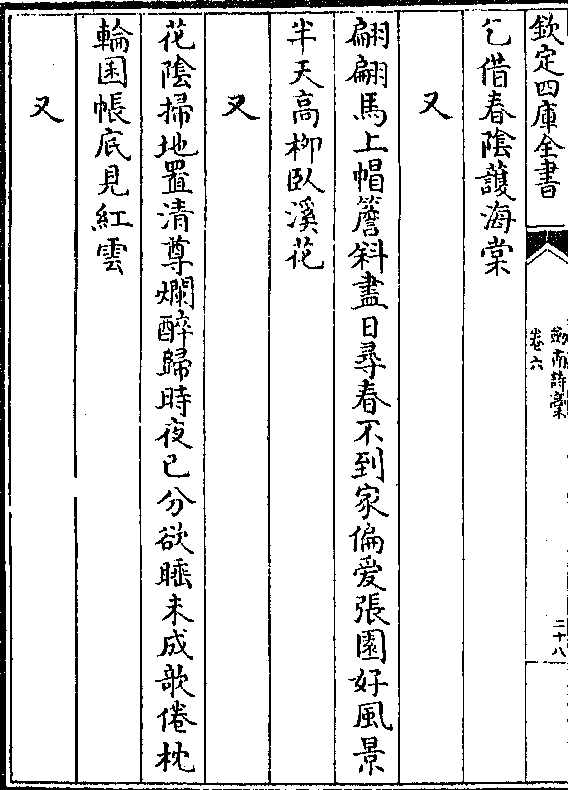 欽定四庫全書
劍南詩藁
卷六
二十八
乞借春陰護海棠
又
翩翩馬上帽簷斜盡日尋春不到家偏爱張園好風景
半天高柳臥溪花
又
花陰掃地置清尊爛醉歸時夜已分欲睡未成歌倦枕
輪囷帳底見紅雲
又